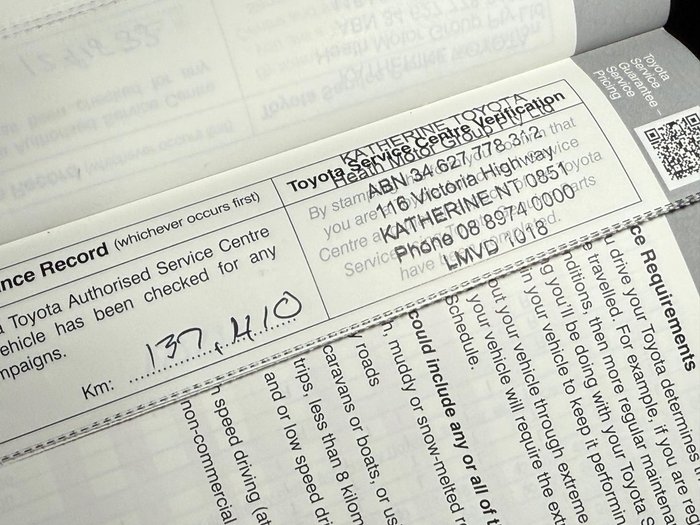 Toyota
Service
Guarantee –
Service
Pricing
KATHERINE TOYOTA
Heath Motor Group Pty Ltd
Toyota Service Centre Verification
ABN 34 627 778 312
116 Victoria Highway
KATHERINE NT 0851
Phone 08 8974 0000
LMVD 1018
By stamping
confirm that
you are
Centre a
Toyota
Service
parts
have been completed.
nce Record (whichever occurs first)
a Toyota Authorised Service Centre
ehicle has been checked for any
mpaigns.
Km: 137,410
ce Requirements
u drive your Toyota determines
e travelled. For example, if you are req
nditions, then more regular maintena
ng you'll be doing with your Toyota
n your vehicle to keep it performin
put your vehicle through extreme
your vehicle will require the ext
Schedule.
could include any or all of t
n, muddy or snow-melted r
y roads
caravans or boats, or us
trips, less than 8 kilom
and/or low speed dri
n speed driving (at
non-commercial